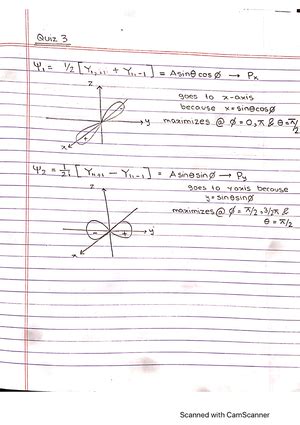 Quiz 3
Ψ₁ = 1/2 [Y₁,₊₁ + Y₁,₋₁] = Asinθcosϕ → Px
z
goes to x-axis
because x=sinθcosϕ
y
maximizes @ ϕ=0,π & θ=π/2
x
+
Ψ₂ = 1/2i [Y₁,₊₁ - Y₁,₋₁] = Asinθsinϕ → Py
z
goes to y axis because
y=sinθsinϕ
maximizes @ ϕ=π/2,3/2π &
θ=π/2
- +
y
x
Scanned with CamScanner